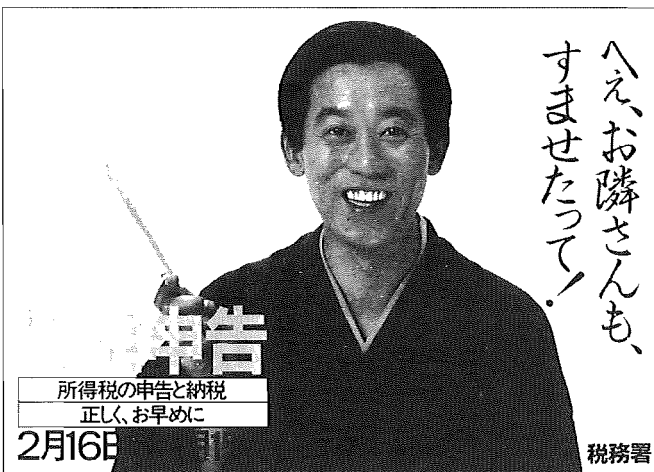 へえ、お隣さんも、
すませたって！
申告
所得税の申告と納税
正しく、お早めに
2月16日
税務署